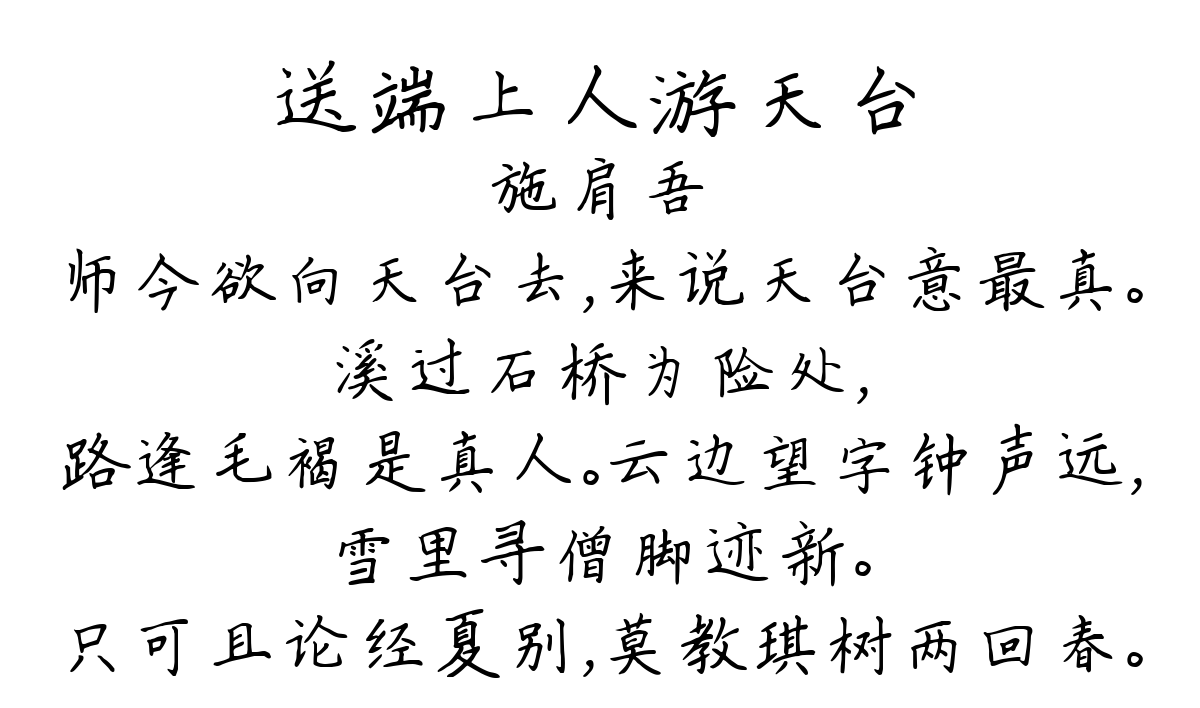 送端上人游天台
施肩吾
师今欲向天台去,来说天台意最真。
溪过石桥为险处,
路逢毛褐是真人。云边望字钟声远,
雪里寻僧脚迹新。
只可且论经夏别,莫教琪树两回春。